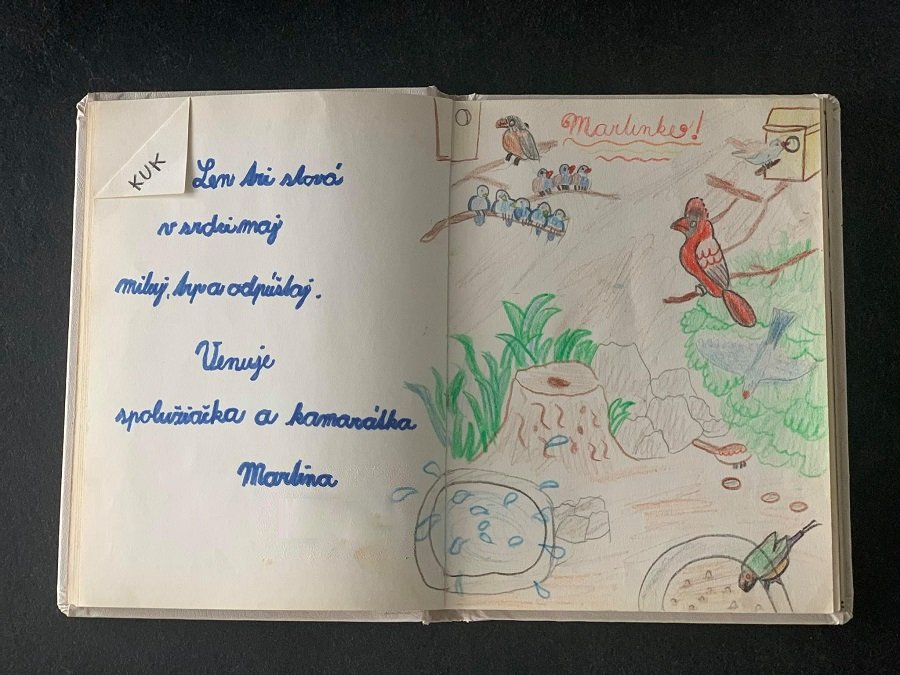 KUK
Len tri slová
v srdci maj
miluj, trp a odpúšťaj.
Venuje
spolužiačka a kamarátka
Martina
Martinke!